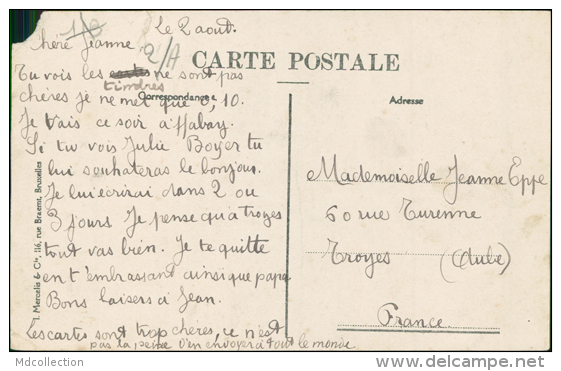 Le 2 aout.
Chère Jeanne,
2/A
CARTE POSTALE
Tu vois les cartes ne sont pas
timbres
chères je ne met que 0,10.
Correspondance
Adresse
Je vais ce soir a Habay
Si tu vois Julie Boyer tu
lui souhateras le bonjour.
Je lui écrirai dans 2 ou
3 jours Je pense qu'a troyes
tout vas bien. Je te quitte
en t'embrassant ainsi que papa
Bons baisers a Jean.
Les cartes sont trop chères, ce n'est
pas la peine d'en envoyer a tout le monde
Mademoiselle Jeanne Eppe
60 rue Turenne
Troyes (Aube)
France
J. Marcelis & Cie, 116, rue Braemt, Bruxelles
Mdcollection
www.delcampe.net